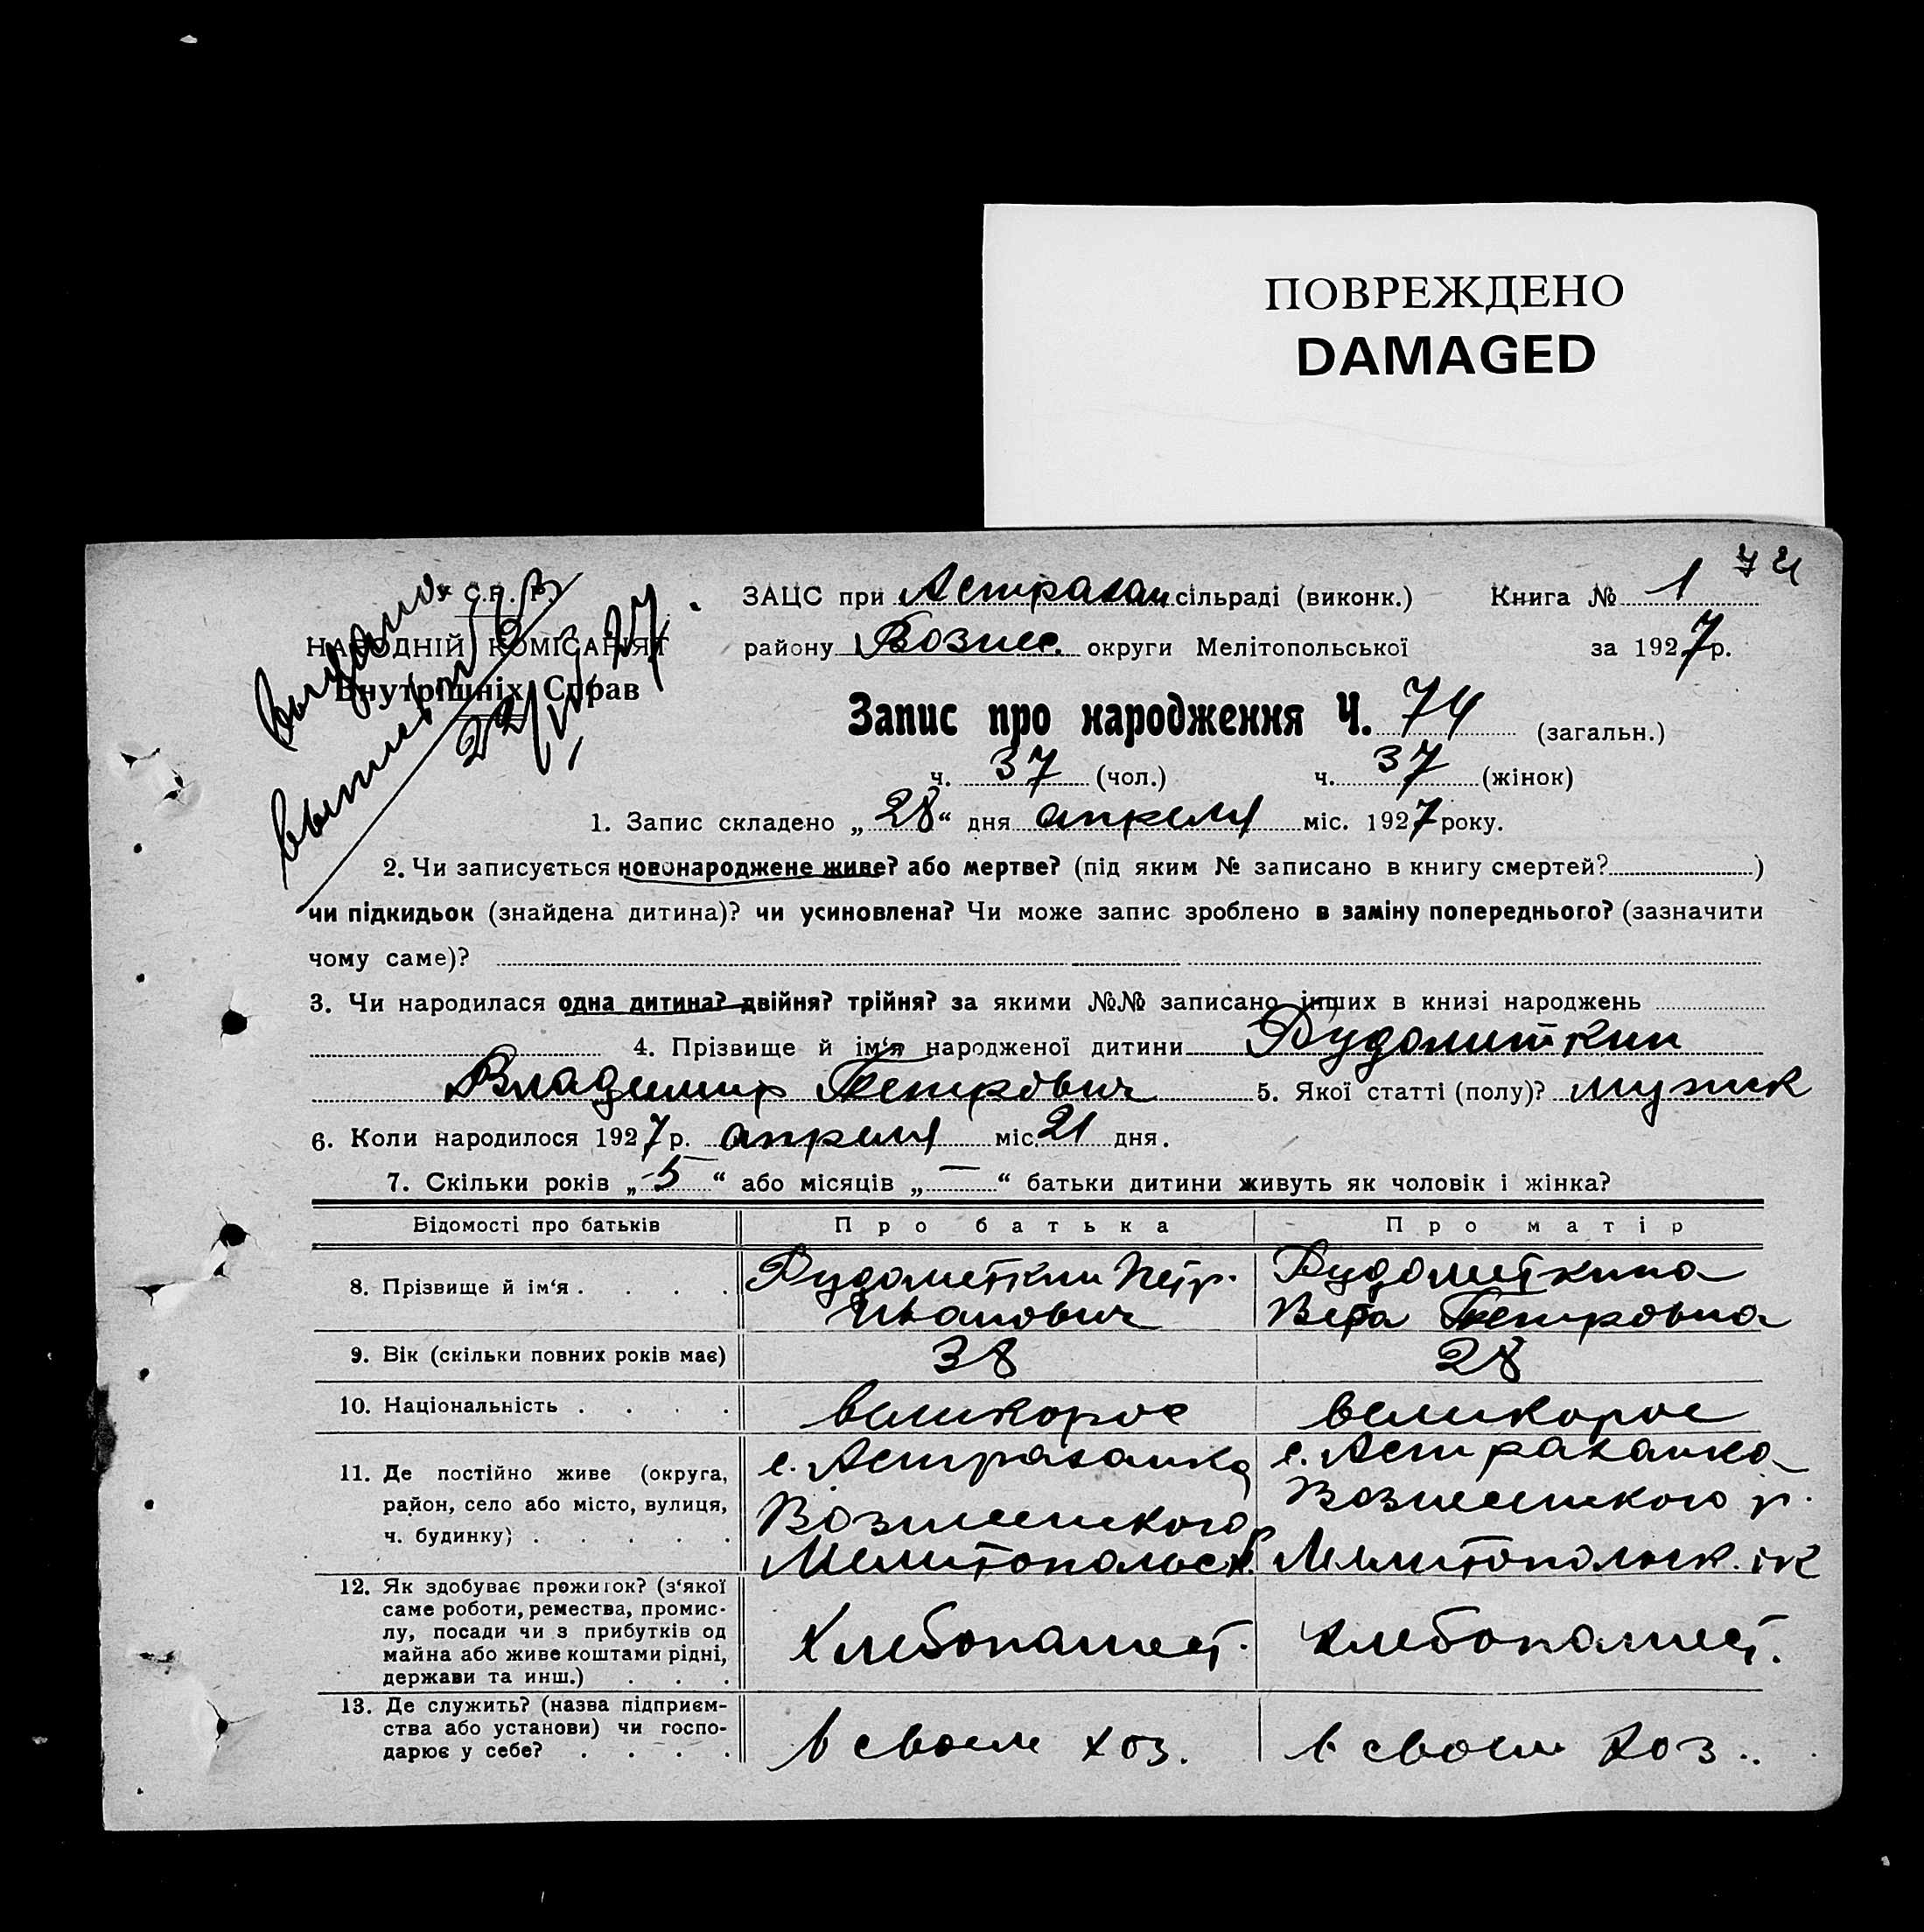 ПОВРЕЖДЕНО
DAMAGED
74
У.С.Р.Р.
НАРОДНІЙ КОМІСАРІЯТ
Внутрішніх Справ
Выдано
выпись
22/VI 27.
ЗАЦС при Астрахан сільраді (виконк.) Книга № 1
району Вознес. округи Мелітопольської за 1927р.
Запис про народження Ч. 74 (загальн.)
ч. 37 (чол.) ч. 37 (жінок)
1. Запис складено „28“ дня апреля міс. 1927 року.
2. Чи записується новонароджене живе? або мертве? (під яким № записано в книгу смертей? )
чи підкидьок (знайдена дитина)? чи усиновлена? Чи може запис зроблено в заміну попереднього? (зазначити
чому саме)?
3. Чи народилася одна дитина? двійня? трійня? за якими №№ записано інших в книзі народжень
4. Прізвище й ім‘я народженої дитини Рудометкин
Владимир Петрович 5. Якої статті (полу)? мужск
6. Коли народилося 1927р. апреля міс. 21 дня.
7. Скільки років „5“ або місяців „—“ батьки дитини живуть як чоловік і жінка?
Відомості про батьків Про батька Про матір
8. Прізвище й ім‘я . . . . Рудометкин Петр. Рудометкина
Иванович Вера Петровна
9. Вік (скільки повних років має) 38 28
10. Національність . . . . великорос великорос
11. Де постійно живе (округа, с. Астраханка с. Астраханка
район, село або місто, вулиця, Вознесенского Вознесенского р.
ч. будинку) . . . . . Мелитопольск. Мелитопольск. ок
12. Як здобуває прожиток? (з‘якої
саме роботи, ремества, промис-
лу, посади чи з прибутків од Хлебопашест. хлебопашест.
майна або живе коштами рідні,
держави та инш.) . . .
13. Де служить? (назва підприєм-
ства або установи) чи госпо- в своем хоз. в своем хоз..
дарює у себе? . . . .